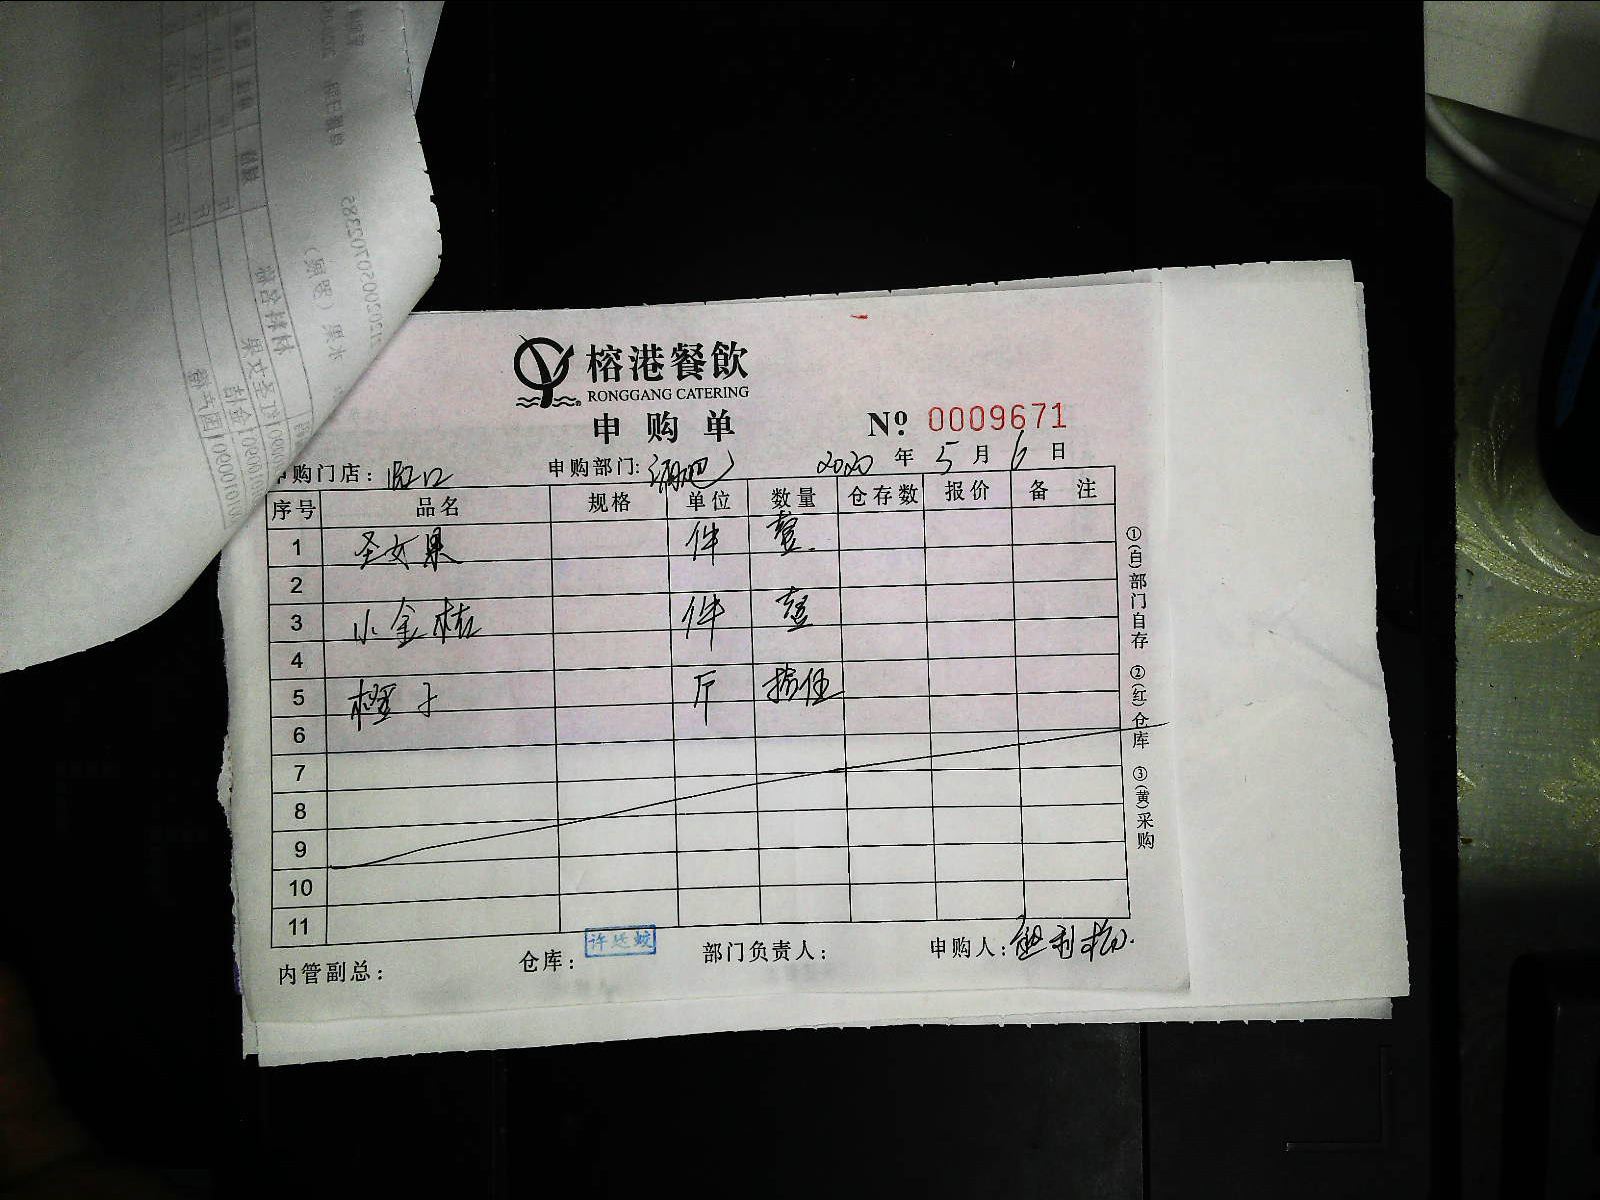 榕港餐飲
RONGGANG CATERING
申购单 Nº 0009671
申购门店: 虹口 申购部门: 酒吧 2020 年 5 月 6 日
序号 品名 规格 单位 数量 仓存数 报价 备注
1 圣女果 件 壹
2
3 小金桔 件 壹
4
5 橙子 斤 拾伍
6
7
8
9
10
11
①(白)部门自存 ②(红)仓库 ③(黄)采购
内管副总: 仓库: 部门负责人: 申购人: